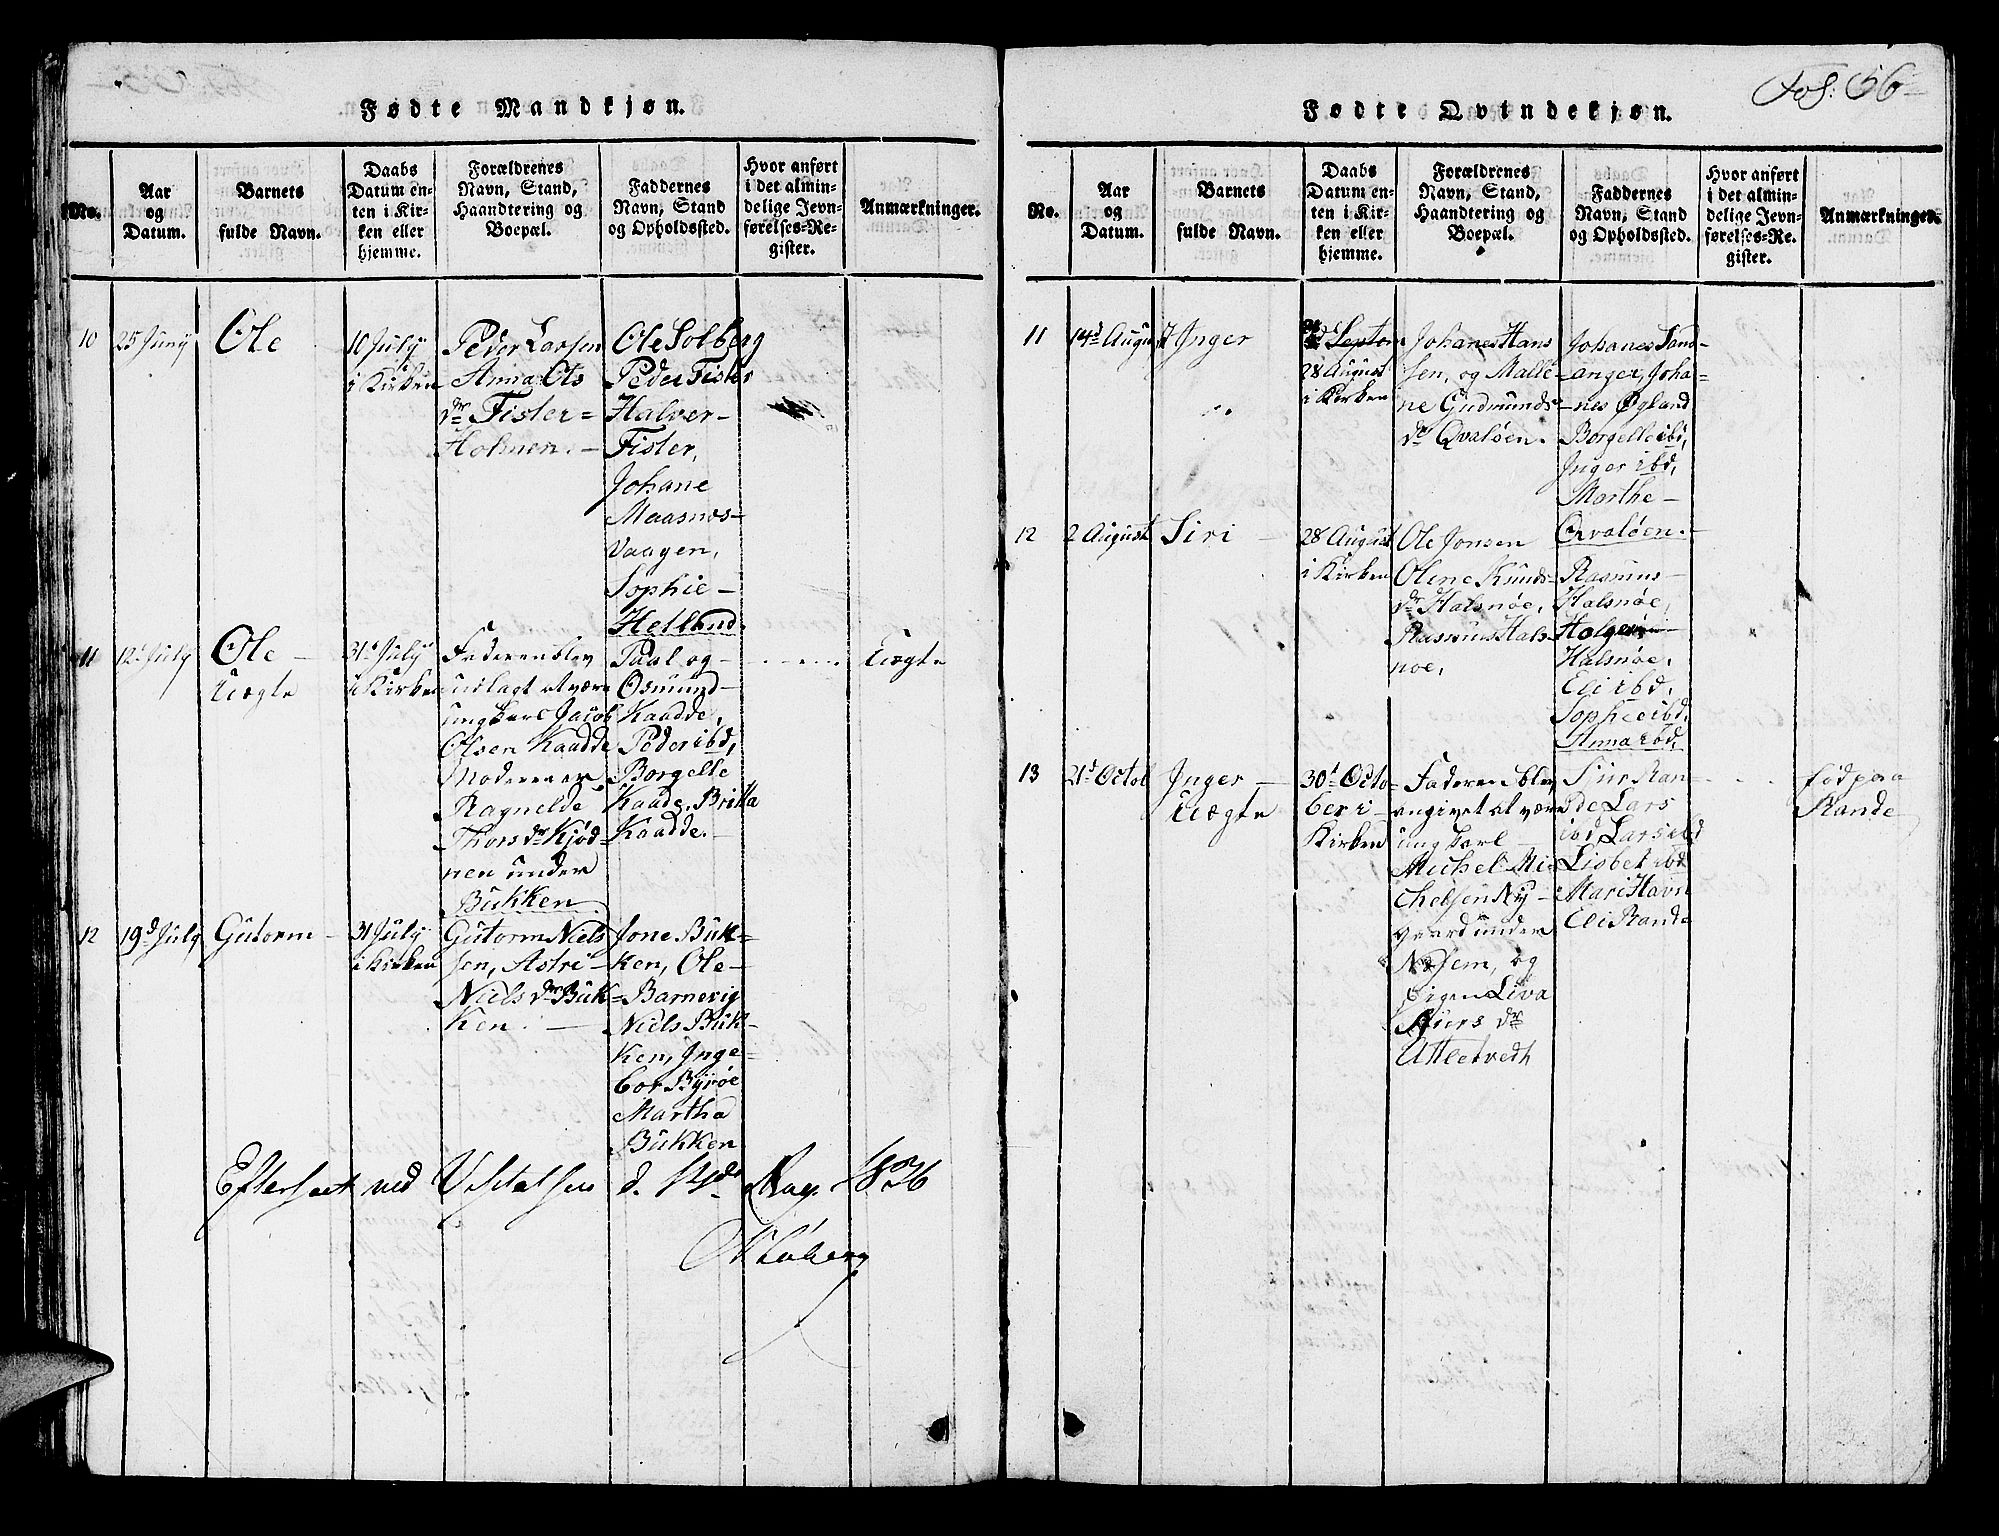 Fol: 56
Fødte Mandkjøn.
No.
Aar
og
Datum.
Barnets
fulde Navn.
Daabs
Datum en-
ten i Kir-
ken eller
hjemme.
Forældrenes
Navn, Stand,
Haandtering og
Boepæl.
Faddernes
Navn, Stand
og Opholdssted.
Hvor anført
i det almin-
delige Jevn-
førelses-Re-
gister.
Anmærkninger.
10
25 Juny
Ole
10 July
i Kirken
Peder Larsen
Anna Ols
dr Fister=
Holmen.
Ole Solberg
Peder Fister
Halver-
Fister,
Johane
Maasnes-
Vaagen,
Sophie-
Helland.
11
12 July
Ole -
Uægte
31 July
i Kirken
Faderen blev
udlagt at være
ungkarl Jacob
Olsen Kaadde
Moderen er
Ragnelde
Thors dr Kjød-
nen under
Bukken.
Paal og
Osmund
Kaadde,
Peder ibd,
Borgelle
Kaade, Britta
Kaadde.-
Uægte
12
19d July
Gutorm -
31 July
i Kirken
Gutorm Niels
sen, Astri-
Niels dr Buk-
ken. -
Jone Buk=
ken, Ole-
Barnevig
Niels Buk-
ken, Inge=
bor Byrøe
Martha
Bukken
Efterseet ved Visitatsen d. 14de Aug. 1836
Fødte Qvindekjøn.
No.
Aar
og
Datum.
Barnets
fulde Navn.
Daabs
Datum en-
ten i Kir-
ken eller
hjemme.
Forældrenes
Navn, Stand,
Haandtering og
Boepæl.
Faddernes
Navn, Stand
og Opholdssted.
Hvor anført
i det almin-
delige Jevn-
førelses-Re-
gister.
Anmærkninger.
11
14d August
Inger
Septem
28 August
i Kirken
Johanes Hans
sen, og Malle-
ne Gudmunds-
dr Qvaløen.
Johanes Sand-
anger, Joha-
nes Øgland
Borgelle ibd,
Inger ibd,
Marthe-
Qvaløen.-
12
2 August
Siri
28 August
i Kirken
Ole Jonsen
Olene Knuds-
dr Halsnøe,
Rasmus Hals
nøe,
Rasmus-
Halsnøe,
Halsnøe,
Eli ibd,
Sophie ibd,
Anna ibd,
13
21d Octob
Inger -
Uægte
30t Octo-
ber i
Kirken
Faderen blev
angivet at være
ungkarl
Michel Mi-
chelsen Ny-
gaard under
og
Pigen Liva
Siurs dr
Atletvedt
Siur Ran-
de Lars
ibd Lars ibd
Lisbet ibd
Mari Havn
Eli Rande
fød paa
Rande